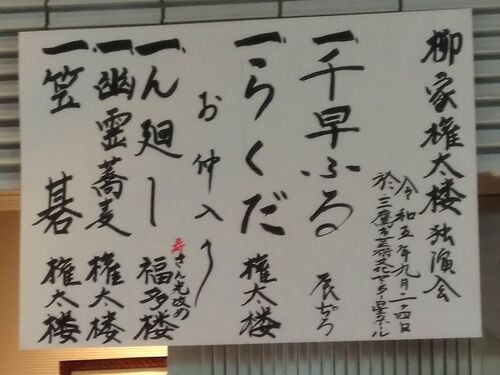 柳家権太楼独演会
令和五年九月二十四日
於、三鷹市芸術文化センター星のホール
一千早ふる 辰ぢろ
一らくだ 権太楼
お仲入り
一ん廻し 寿さん光改め 福多楼
一幽霊蕎麦 権太楼
一笠碁 権太楼